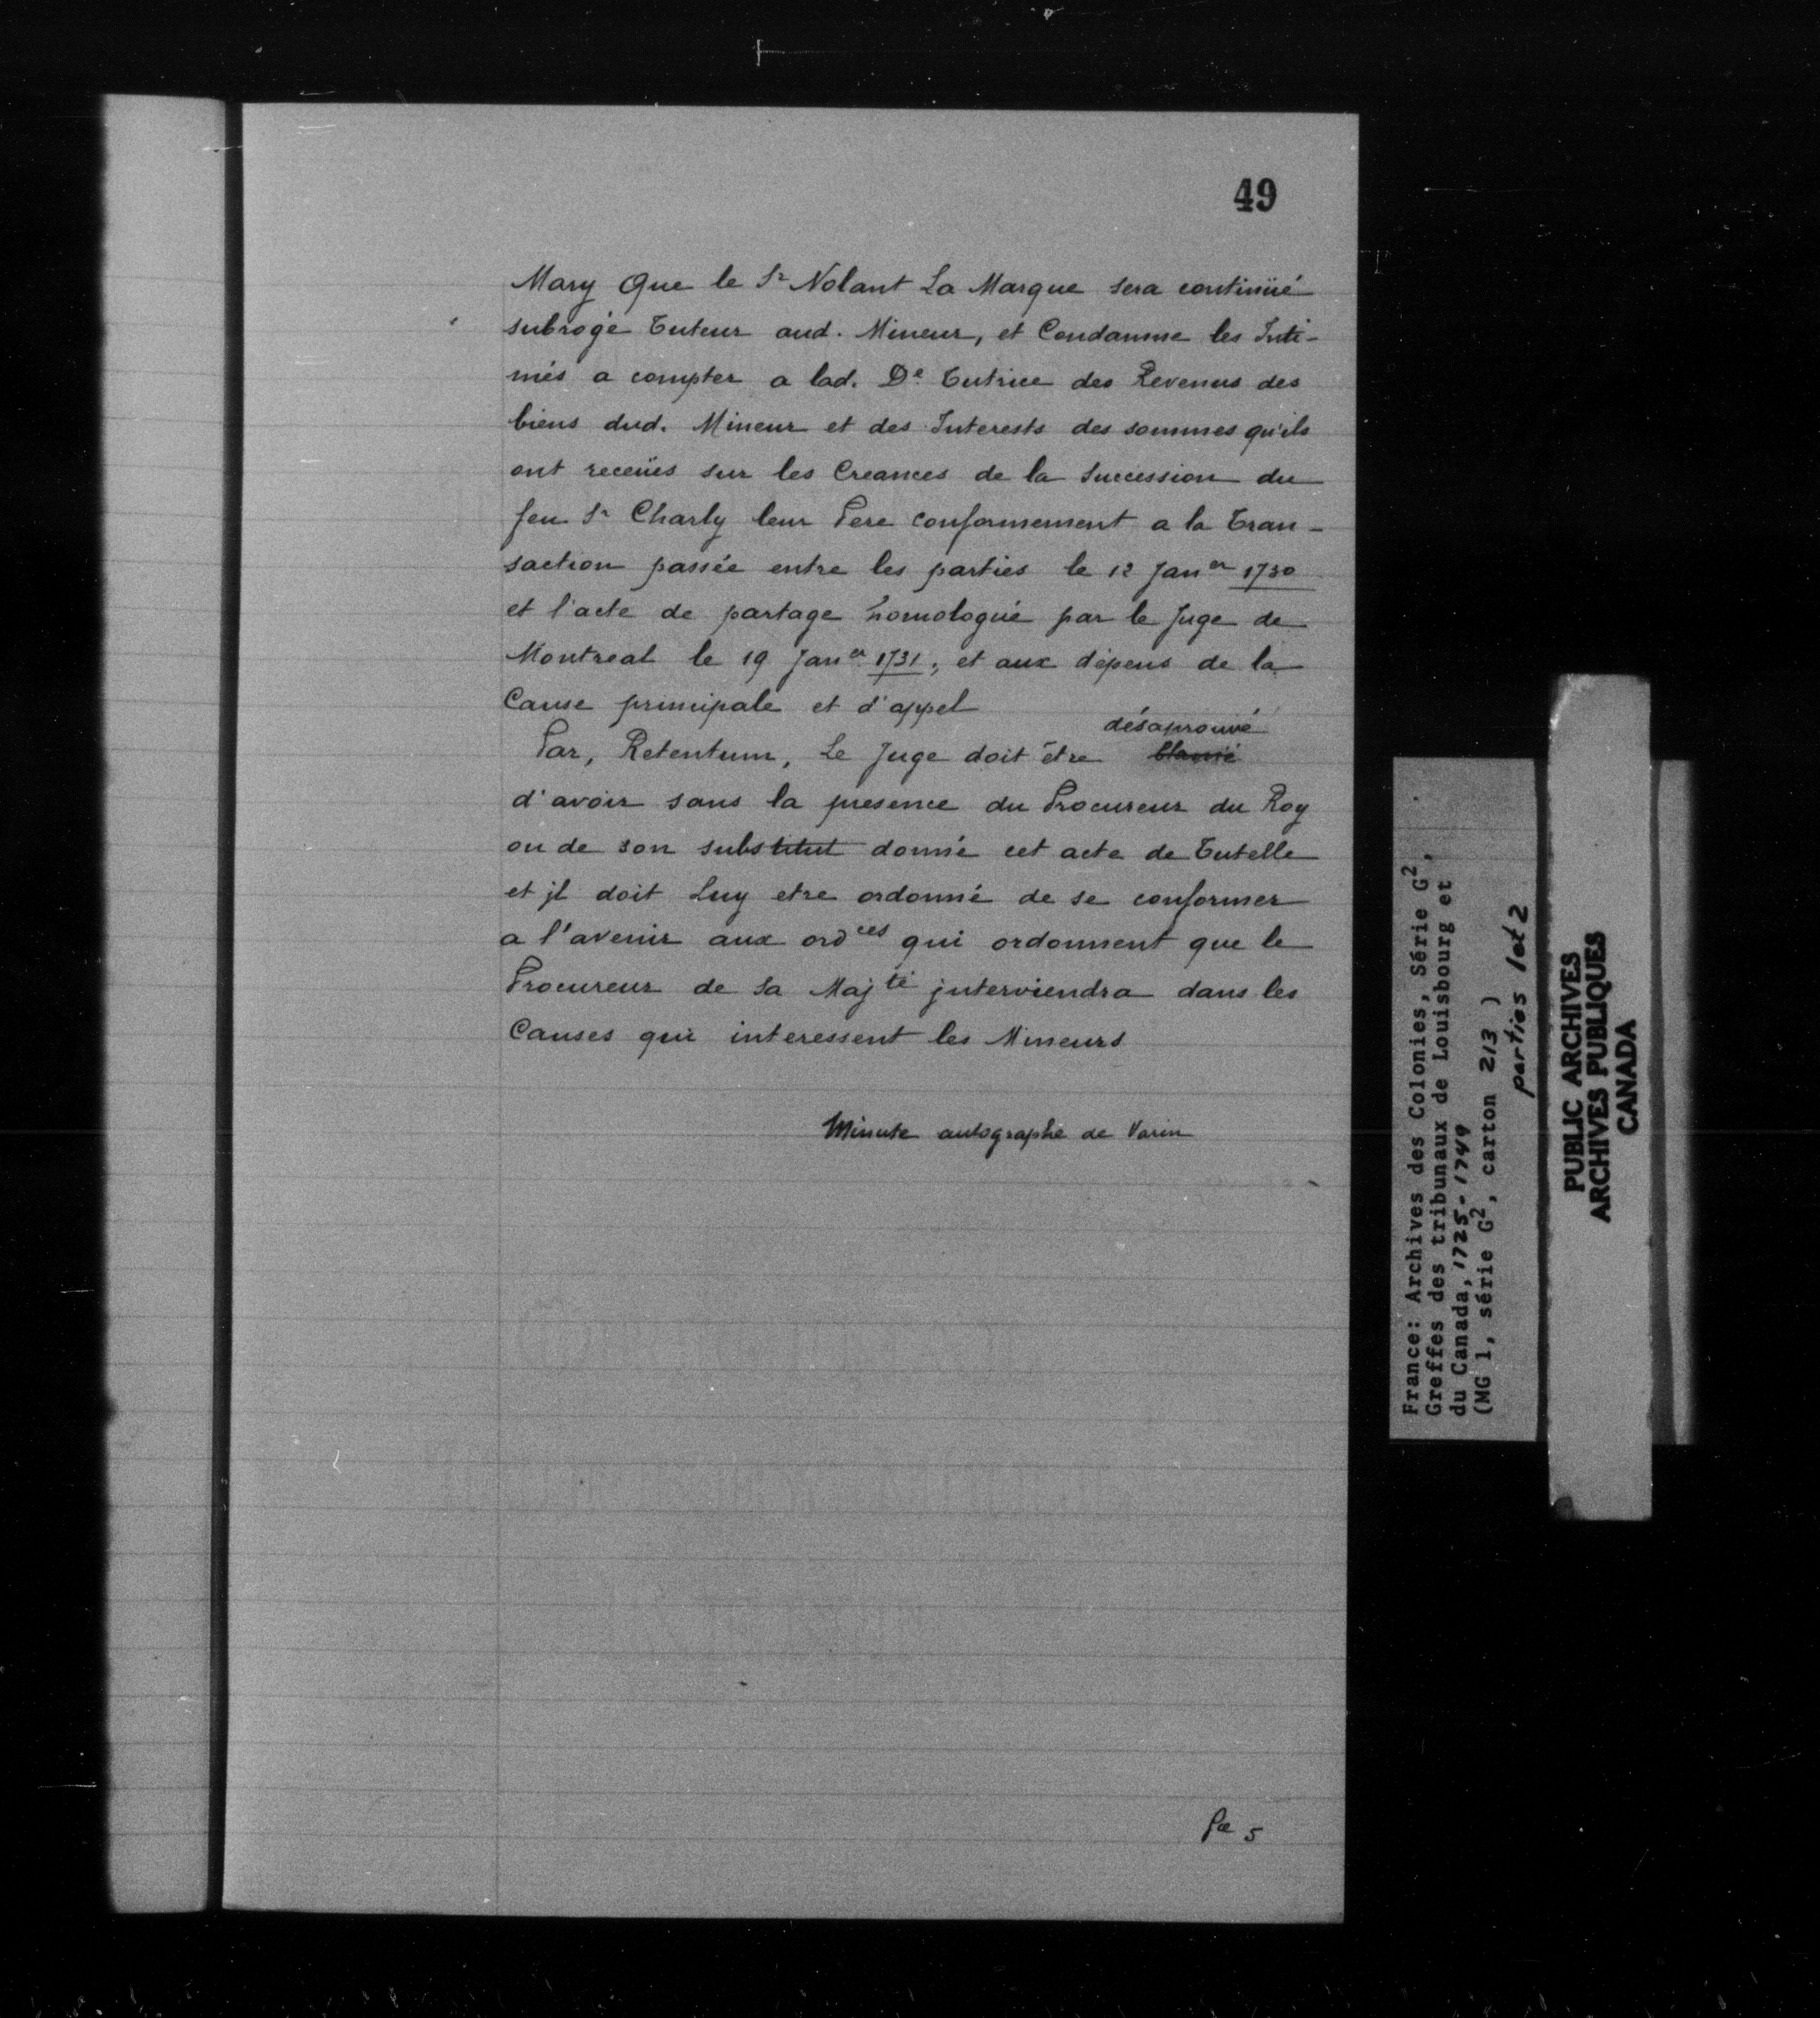 49
Mary Que le Sr Nolant La Marque sera continüé
subrogé Tuteur aud. Mineur, et Condamne les Inti-
més a compter a lad. De Tutrice des Revenus des
biens dud. Mineur et des Interests des sommes qu'ils
ont receües sur les Creances de la Succession du
feu Sr Charly leur Pere conformement a la Tran-
saction passée entre les parties le 12 Janer 1730
et l'acte de partage homologué par le Juge de
Montreal le 19 Janer 1731, et aux dépens de la
Cause principale et d'appel
désaprouvé
Par, Retentum, Le Juge doit être blamé
d'avoir sans la presence du Procureur du Roy
ou de son substitut donné cet acte de Tutelle
et jl doit Luy etre ordonné de se conformer
a l'avenir aux ordces qui ordonnent que le
Procureur de Sa Majté jnterviendra dans les
Causes qui interessent les Mineurs
Minute autographe de Varin
Pce 5
France: Archives des Colonies, Série G2,
Greffes des tribunaux de Louisbourg et
du Canada, 1725-1749
(MG 1, série G2, carton 213 )
parties 1et2
PUBLIC ARCHIVES
ARCHIVES PUBLIQUES
CANADA